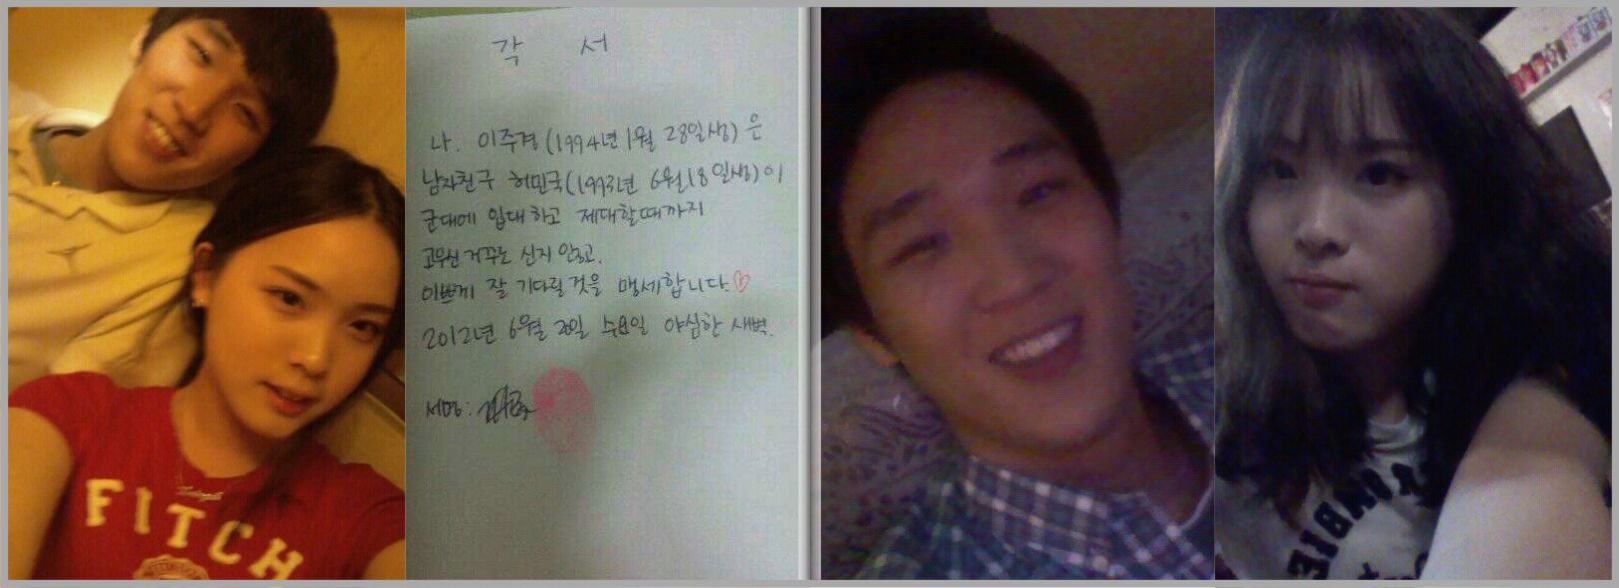 FITCH
각 서
나. 이주경(1994년 1월 28일생)은
남자친구 허민국(1993년 6월18일생)이
군대에 입대하고 제대할때까지
고무신 거꾸로 신지 않고.
이쁘게 잘 기다릴것을 맹세합니다♡
2012년 6월 20일 수요일 야심한 새벽.
서명: